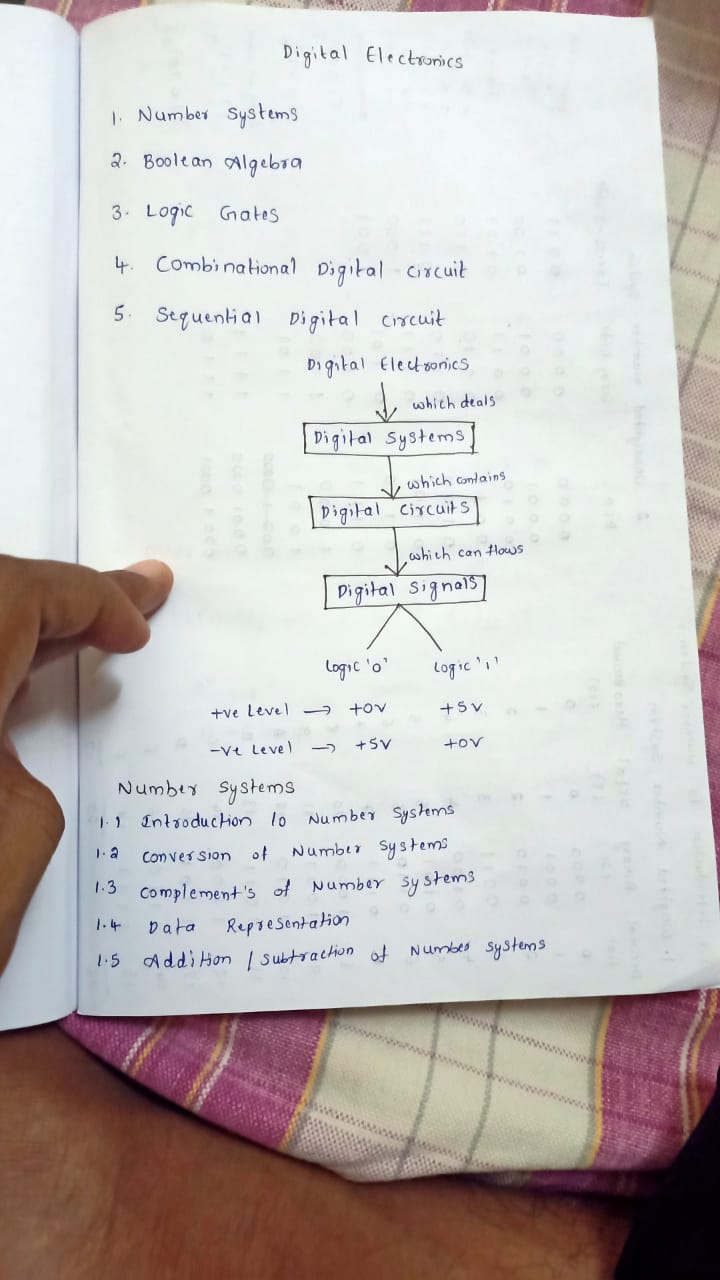 Digital Electronics
1. Number Systems
2. Boolean Algebra
3. Logic Gates
4. Combinational Digital Circuit
5. Sequential Digital Circuit
Digital Electronics
which deals
Digital Systems
which contains
Digital Circuits
which can flows
Digital Signals
Logic '0' Logic '1'
+ve Level → +0V +5V
-ve Level → +5V +0V
Number Systems
1.1 Introduction to Number Systems
1.2 Conversion of Number Systems
1.3 Complement's of Number Systems
1.4 Data Representation
1.5 Addition / Subtraction of Number Systems